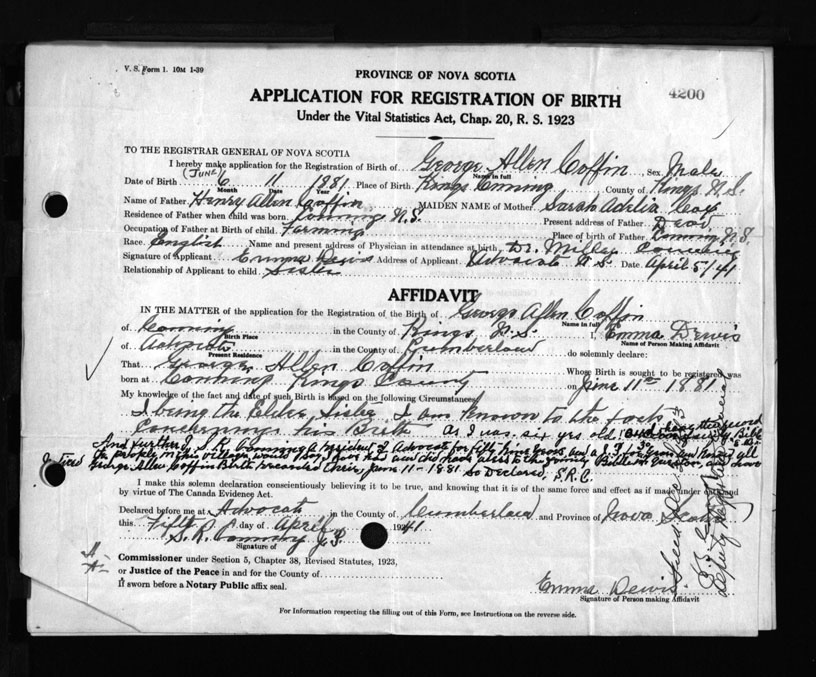 V. S. Form 1. 10M 1-39
PROVINCE OF NOVA SCOTIA
4200
APPLICATION FOR REGISTRATION OF BIRTH
Under the Vital Statistics Act, Chap. 20, R. S. 1923
TO THE REGISTRAR GENERAL OF NOVA SCOTIA
I hereby make application for the Registration of Birth of George Allen Coffin Sex Male
Name in full
(June)
Date of Birth 6 11 1881 Place of Birth Kings Canning County of Kings N.S.
Month Date Year
Name of Father Henry Allen Coffin MAIDEN NAME of Mother Sarah Adelia Cox
Residence of Father when child was born. Canning N.S. Present address of Father Dead
Occupation of Father at Birth of child. Farming Place of birth of Father Canning N.S.
Race. English Name and present address of Physician in attendance at birth, Dr. Miller Canning
Signature of Applicant Emma Dewis Address of Applicant Advocate N.S. Date April 5/41
Relationship of Applicant to child Sister
AFFIDAVIT
IN THE MATTER of the application for the Registration of the Birth of George Allen Coffin
Name in full
of Canning in the County of Kings N.S. I, Emma Dewis
Birth Place Name of Person Making Affidavit
of Advocate in the County of Cumberland do solemnly declare:
Present Residence
That George Allen Coffin Whose Birth is sought to be registered was
born at Canning Kings County on June 11th 1881
My knowledge of the fact and date of such Birth is based on the following Circumstances
I being the Elder Sister I am known to the facts
Concerning his Birth as I was six yrs old
And further I, S. R. Comming a resident of Advocate for fifty
George Allen Coffin Birth recorded their, June 11 - 1881 So Declared, S.R.C.
I make this solemn declaration conscientiously believing it to be true, and knowing that it is of the same force and effect as if made under oath and
by virtue of The Canada Evidence Act.
Declared before me at Advocate in the County of Cumberland and Province of Nova Scotia
this Fifth day of April 1941
S. R. Comming J.P.
Signature of
Commissioner under Section 5, Chapter 38, Revised Statutes, 1923,
or Justice of the Peace in and for the County of
If sworn before a Notary Public affix seal.
Emma Dewis
Signature of Person making Affidavit
Deputy Registrar General
For Information respecting the filling out of this Form, see Instructions on the reverse side.